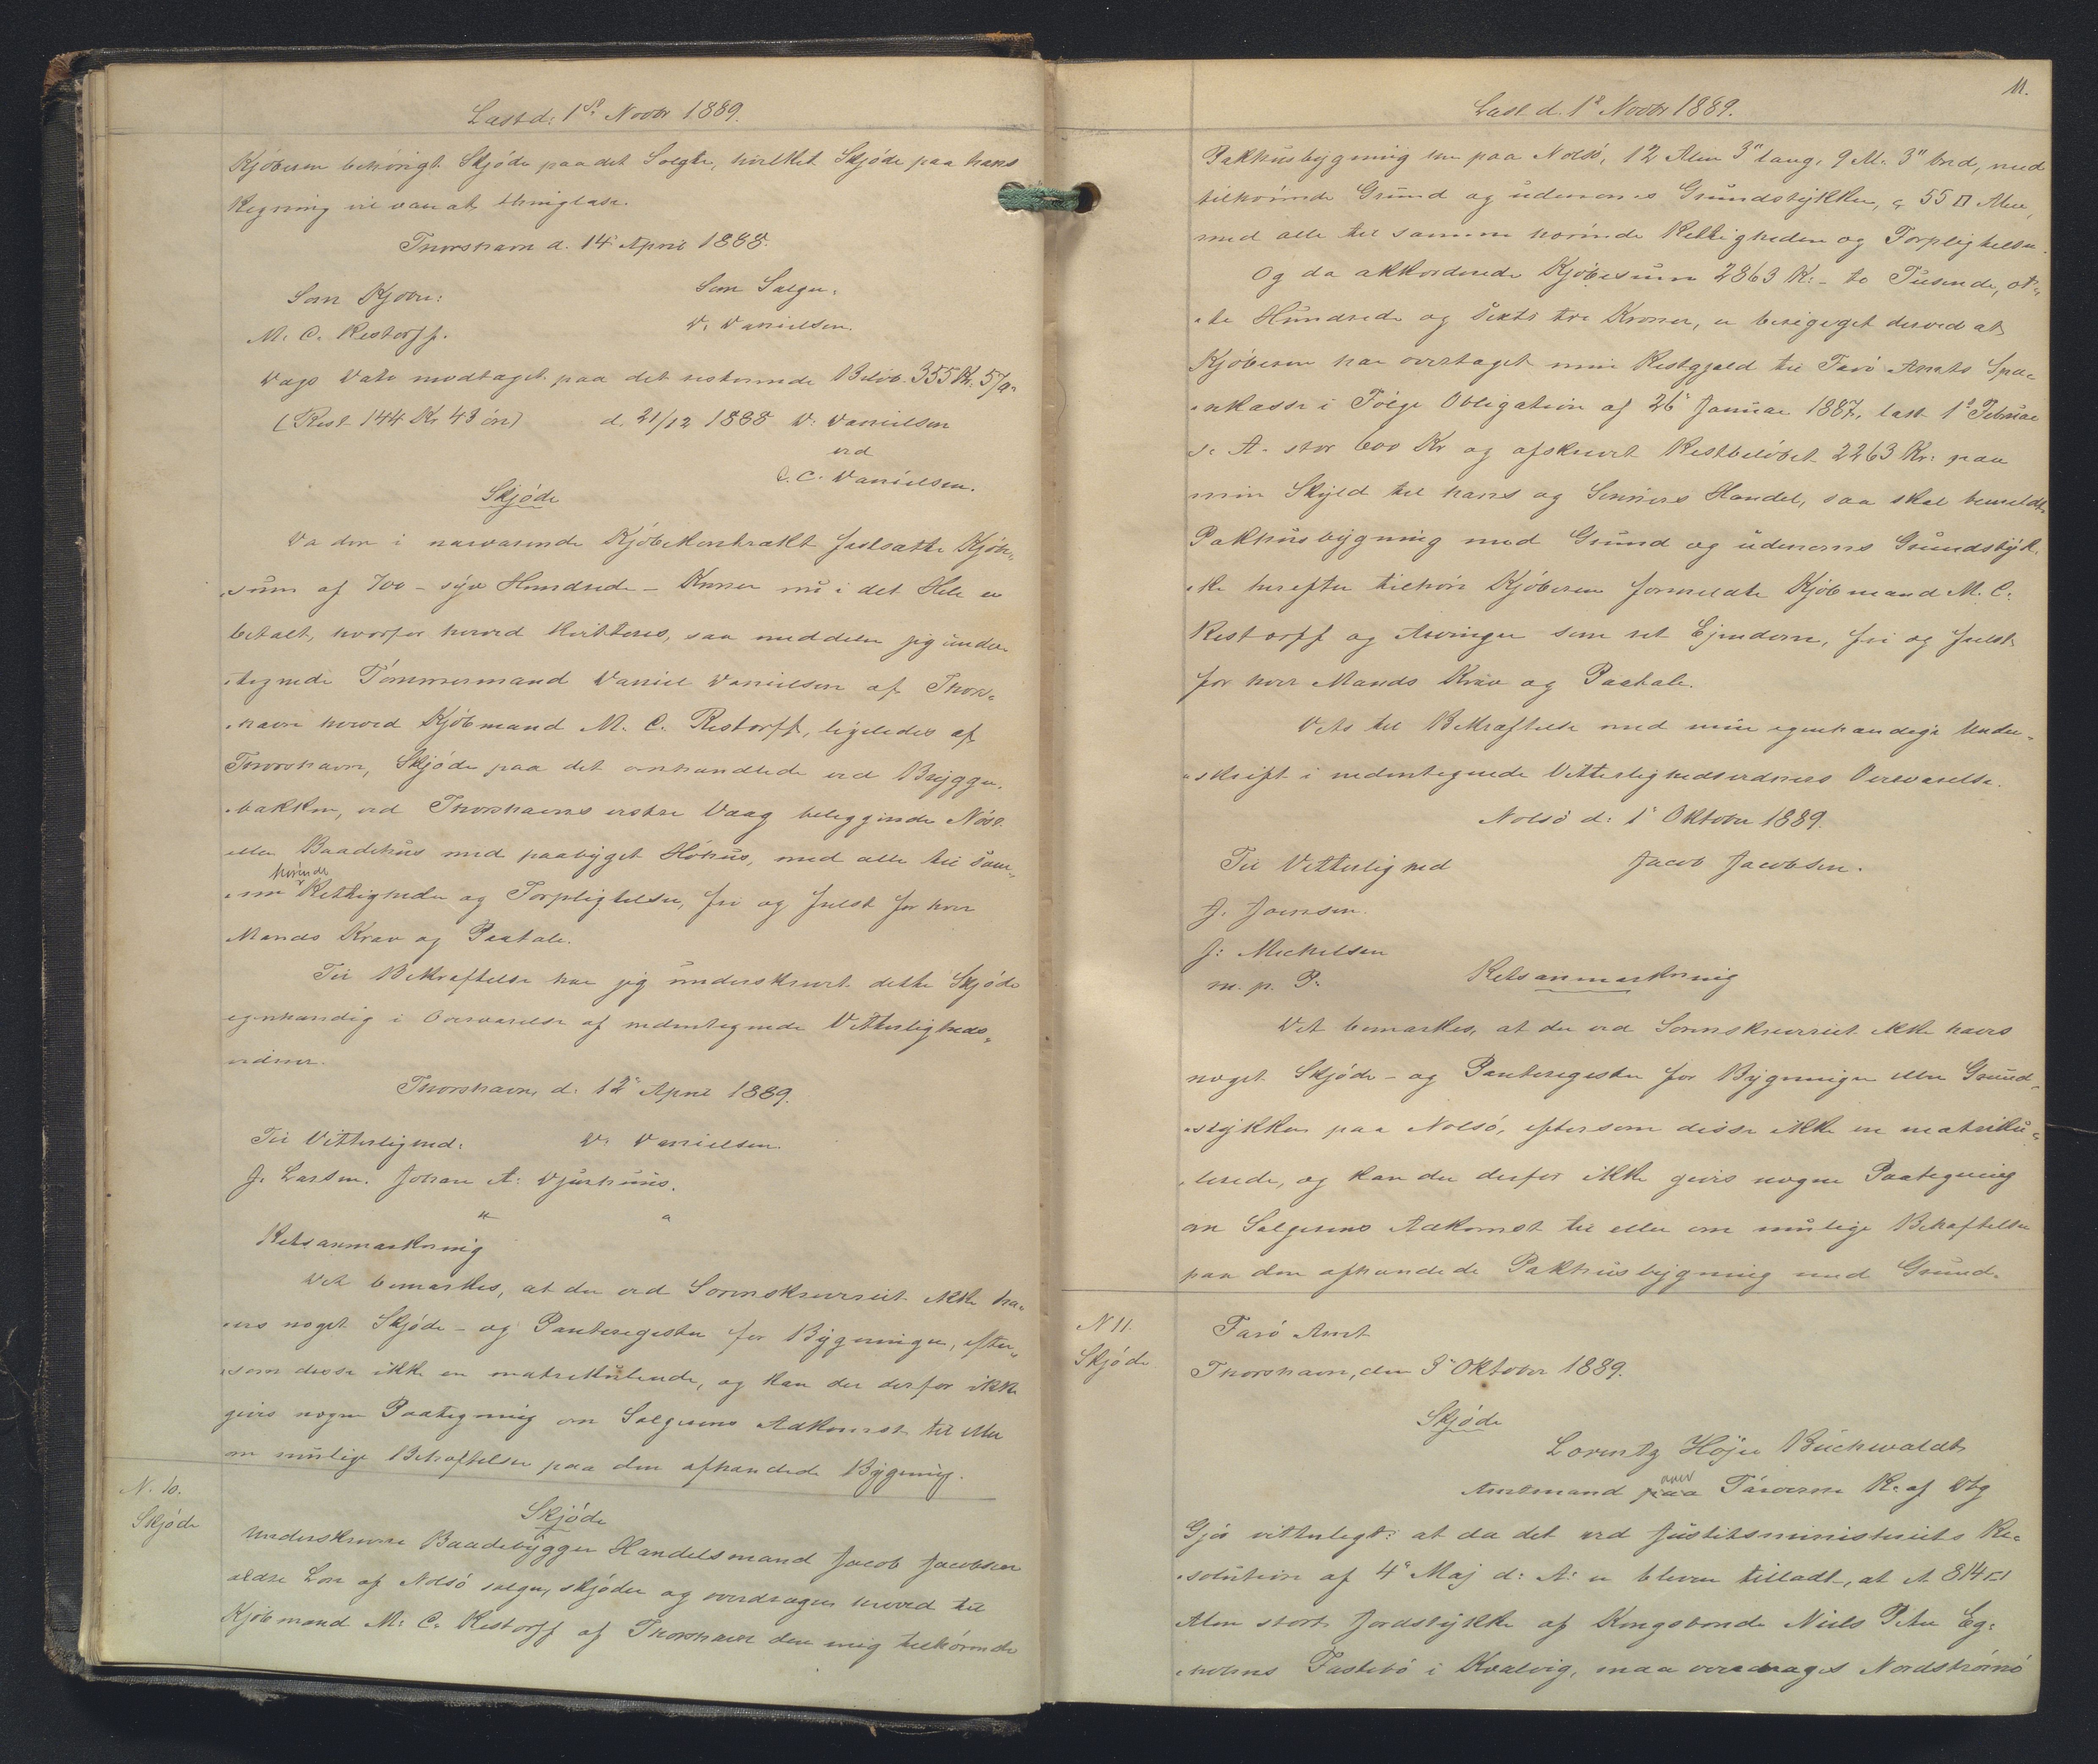 Læst d: 1ste Novbr 1889.
Kjöberen behörigt Skjöde paa det Solgte, hvilket Skjöde paa hans
Regning vil være at thinglæse.
Thorshavn d. 14 April 1888.
Som Kjöber: Som Sælger.
M. C. Restorff. D. Danielsen.
Dags Dato modtaget paa det resterende Belöb 355 Kr. 57 ø.
(Rest 144 Kr 43 öre) d. 21/12 1888 D. Danielsen
ved
C. C. Danielsen.
Skjöde
Da den i nærværende Kjöbekontrakt fastsatte Kjöbe-
sum af 700 - syv Hundrede - Kroner nu i det Hele er
betalt, hvorfor herved kvitteres, saa meddeler jeg under-
tegnede Tömmermand Daniel Danielsen af Thors-
havn herved Kjöbmand M. C. Restorff, ligeledes af
Thorshavn, Skjöde paa det omhandlede ved Brygge-
bakken, ved Thorshavns østre Vaag beliggende Nöst
eller Baadehus med paabygget Höhus, med alle til sam-
me hörende Rettigheder og Forpligtelser, fri og frelst for hver
Mands Krav og Paatale.
Til Bekræftelse har jeg underskrevet dette Skjöde
egenhændig i Overværelse af nedentegnede Vitterligheds-
vidner.
Thorshavn, d. 12 April 1889.
Til Vitterlighed: D. Danielsen.
J. Larsen. Johan A. Djurhuus.
Retsanmærkning
Det bemærkes, at der ved Sorenskriveriet ikke ha-
ves noget Skjöde- og Panteregister for Bygninger, efter-
som disse ikke er matrikulerede, og kan der derfor ikke
gives nogen Paategning om Sælgerens Adkomst til eller
om mulige Behæftelser paa den afhændede Bygning.
N. 10.
Skjöde
Skjöde
Underskrevne Baadebygger Handelsmand Jacob Jacobsen
ældre Lon af Nolsö sælger, skjöder og overdrager herved til
Kjöbmand M. C. Restorff af Thorshavn den mig tilhörende
11.
Læst d. 1e Novbr 1889.
Pakhusbygning her paa Nolsö, 12 Alen 3" lang, 9 Al. 3" bred, med
tilhörende Grund og udenoms Grundstykker, c 55 □ Alen,
med alle til samme hörende Rettigheder og Forpligtelser.
Og da akkorderede Kjöbesum 2863 Kr. - to Tusende, ot-
te Hundrede og sexti tre Kroner, er berigtiget derved at
Kjöberen har overtaget min Restgjæld til Færö Amts Spa-
rekasse i Fölge Obligation af 26 Januar 1887, læst 1e Februar
s. A. stor 600 Kr og afskrevet Restbelöbet 2263 Kr: paa
min Skyld til hans og Sönners Handel, saa skal bemeldte
Pakhusbygning med Grund og udenoms Grundstyk-
ke herefter tilhöre Kjöberen formeldte Kjöbmand M. C.
Restorff og Arvinger som ret Ejendom, fri og frelst
for hver Mands Krav og Paatale.
Dets til Bekræftelse med min egenhændige Under-
skrift i nedentegnede Vitterlighedsvidners Overværelse.
Nolsö d: 1 Oktober 1889.
Til Vitterlighed Jacob Jacobsen.
J. Joensen.
J: Michelsen
m. p. P.
Retsanmærkning
Det bemærkes, at der ved Sorenskriveriet ikke haves
noget Skjöde- og Panteregister for Bygninger eller Grund-
stykker paa Nolsö, eftersom disse ikke er matriku-
lerede, og kan der derfor ikke gives nogen Paategning
om Sælgerens Adkomst til eller om mulige Behæftelser
paa den afhændede Pakhusbygning med Grund.
N 11.
Skjöde
Færö Amt
Thorshavn, den 3 Oktober 1889.
Skjöde
Lorentz Höyer Buchwaldt
Amtmand paa over Færöerne R. af Dbg
Gjör vitterligt: at da det ved Justitsministeriets Re-
solution af 4 Maj d: A: er bleven tilladt, at et 814 □
Alen stort Jordstykke af Kongsbonde Niels Peter Eg-
holms Fæstebö i Kvalvig, maa overdrages Nordströmö